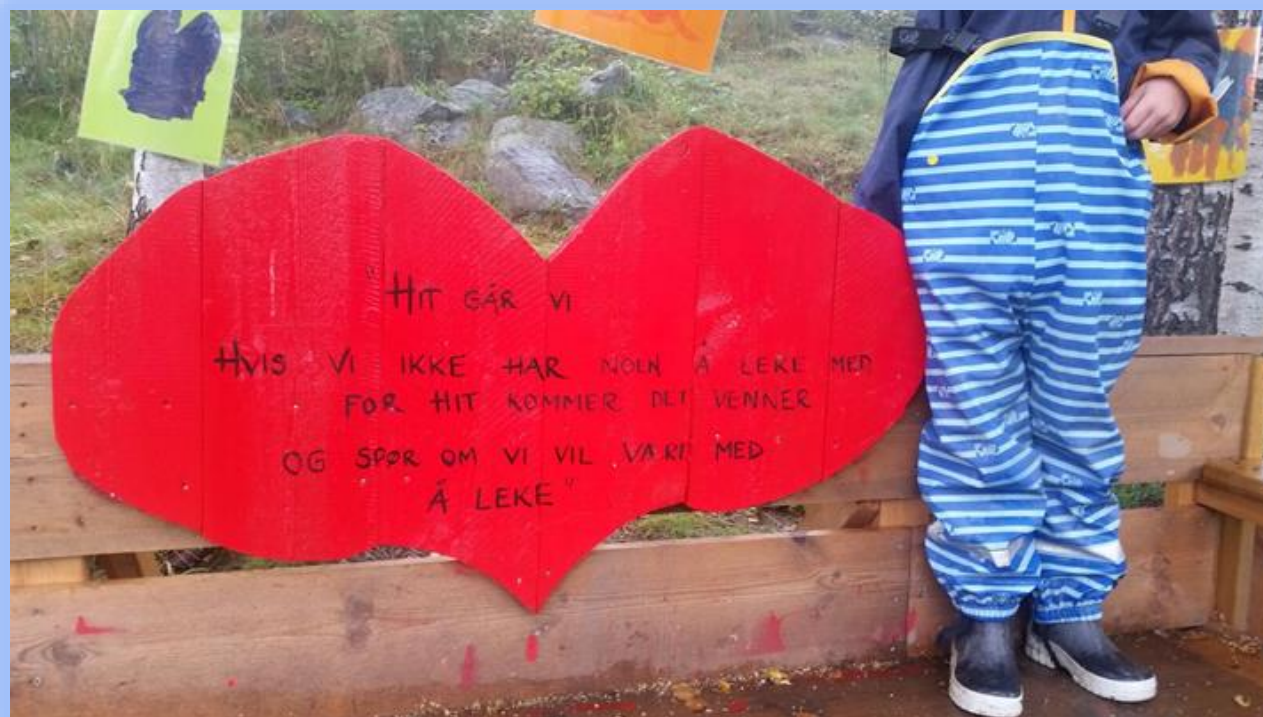 "HIT GÅR VI
HVIS VI IKKE HAR NOEN Å LEKE MED
FOR HIT KOMMER DET VENNER
OG SPØR OM VI VIL VÆRE MED
Å LEKE"